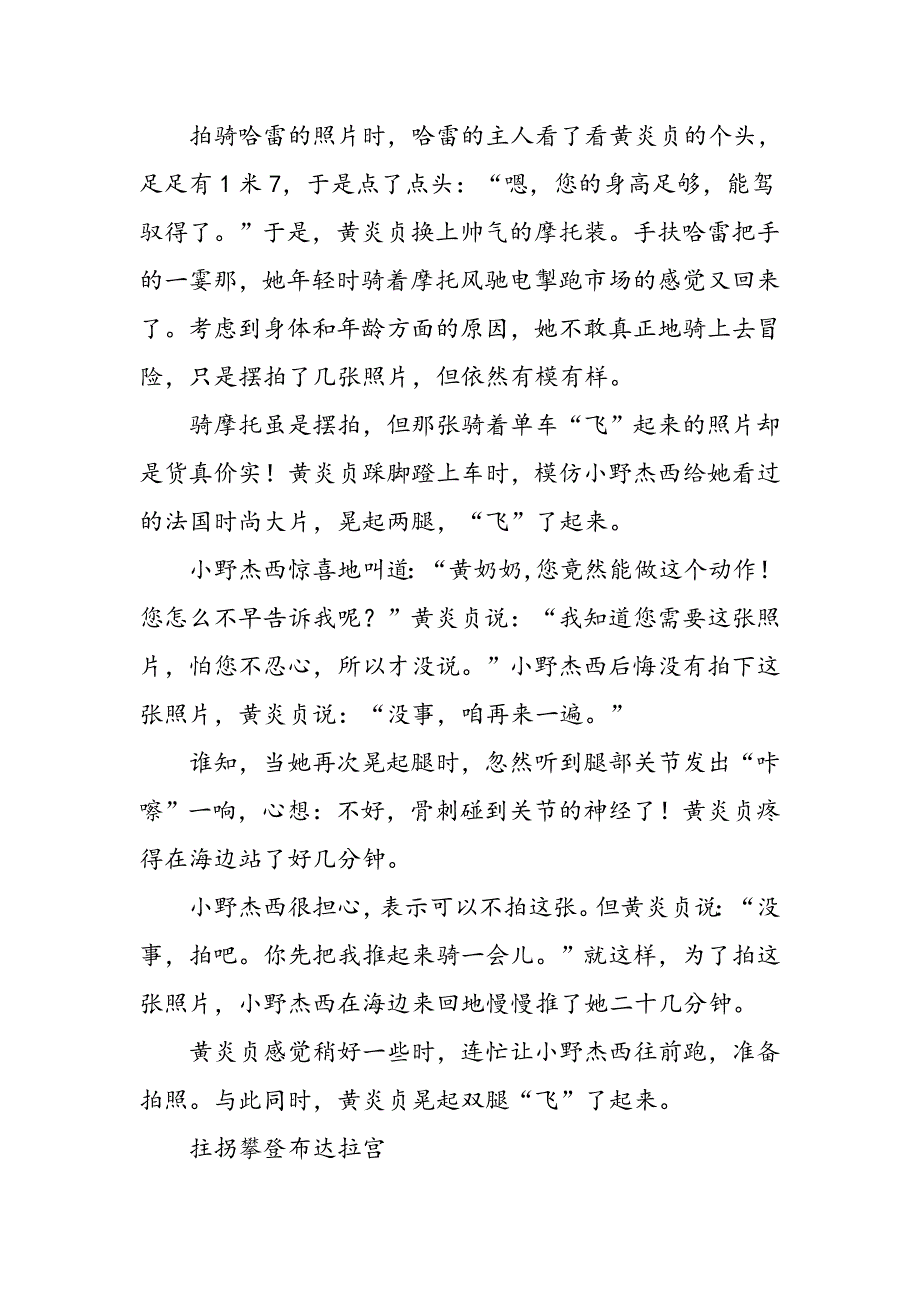 拍骑哈雷的照片时，哈雷的主人看了看黄炎贞的个头，
足足有1米7，于是点了点头：“嗯，您的身高足够，能驾
驭得了。”于是，黄炎贞换上帅气的摩托装。手扶哈雷把手
的一霎那，她年轻时骑着摩托风驰电掣跑市场的感觉又回来
了。考虑到身体和年龄方面的原因，她不敢真正地骑上去冒
险，只是摆拍了几张照片，但依然有模有样。
骑摩托虽是摆拍，但那张骑着单车“飞”起来的照片却
是货真价实！黄炎贞踩脚蹬上车时，模仿小野杰西给她看过
的法国时尚大片，晃起两腿，“飞”了起来。
小野杰西惊喜地叫道：“黄奶奶,您竟然能做这个动作！
您怎么不早告诉我呢？”黄炎贞说：“我知道您需要这张照
片，怕您不忍心，所以才没说。”小野杰西后悔没有拍下这
张照片，黄炎贞说：“没事，咱再来一遍。”
谁知，当她再次晃起腿时，忽然听到腿部关节发出“咔
嚓”一响，心想：不好，骨刺碰到关节的神经了！黄炎贞疼
得在海边站了好几分钟。
小野杰西很担心，表示可以不拍这张。但黄炎贞说：“没
事，拍吧。你先把我推起来骑一会儿。”就这样，为了拍这
张照片，小野杰西在海边来回地慢慢推了她二十几分钟。
黄炎贞感觉稍好一些时，连忙让小野杰西往前跑，准备
拍照。与此同时，黄炎贞晃起双腿“飞”了起来。
拄拐攀登布达拉宫